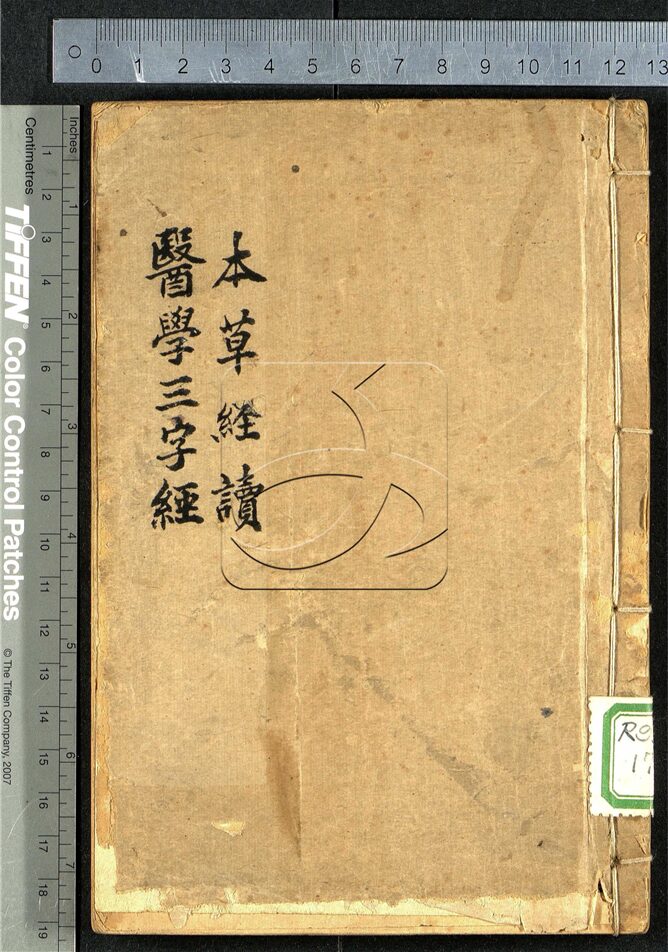 0 1 2 3 4 5 6 7 8 9 10 11 12 13
本草経讀
醫學三字經
Inches
Centimetres
1 2 3 4 5 6 7 8 9 10 11 12 13 14 15 16 17 18 19
1 2 3 4 5 6 7
TIFFEN® Color Control Patches
© The Tiffen Company, 2007